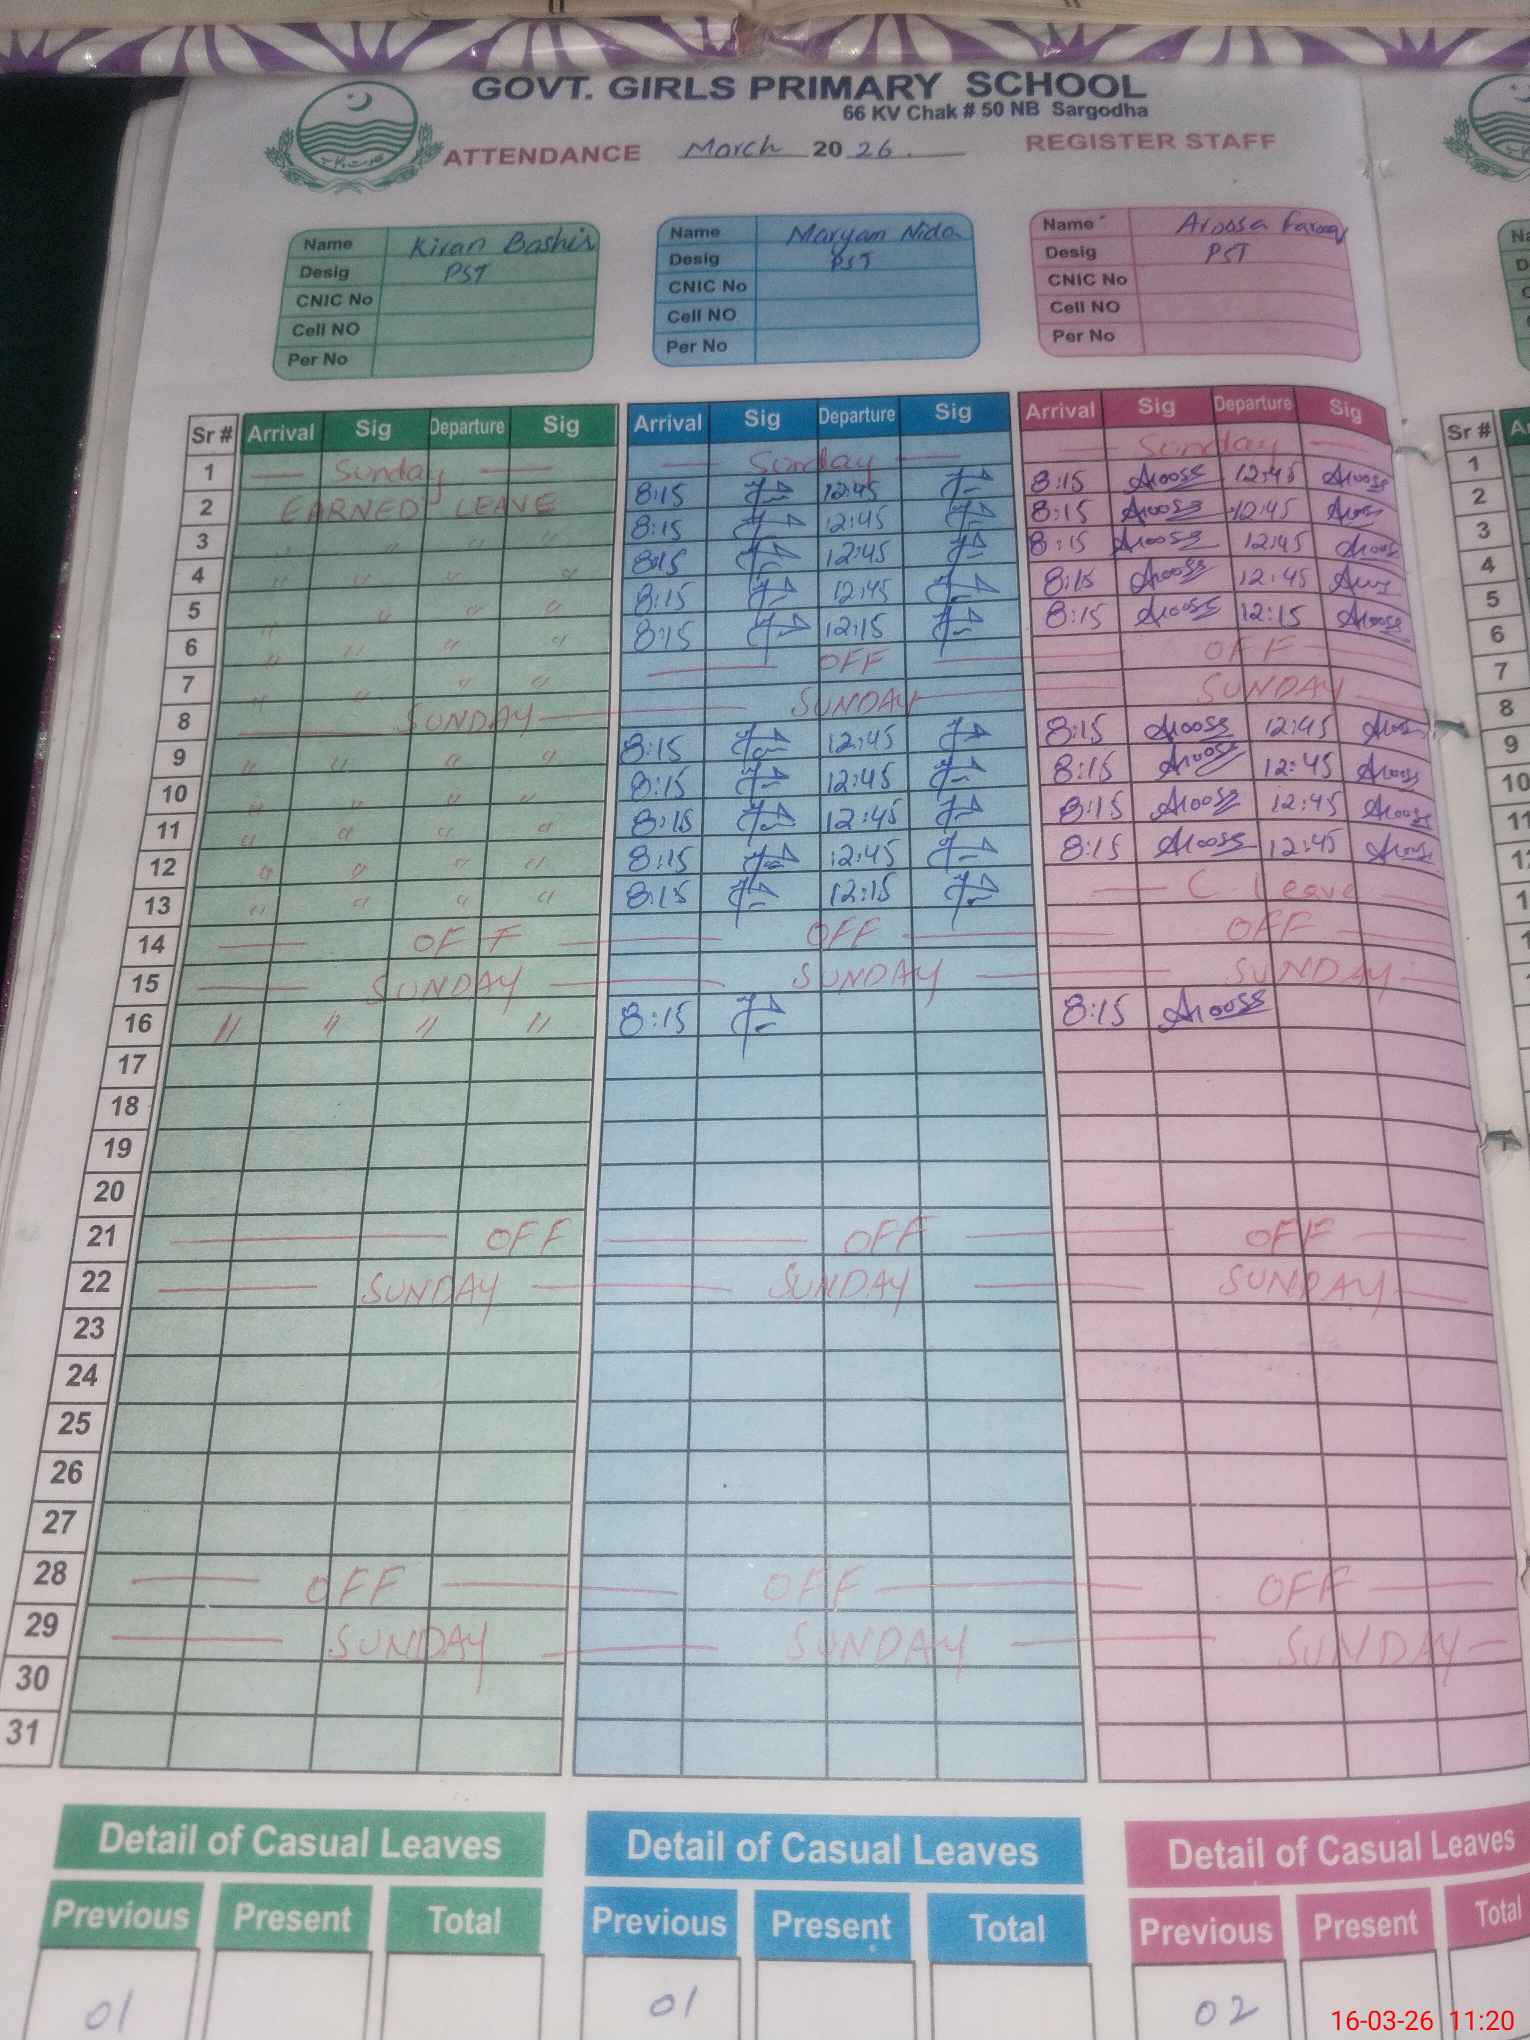 GOVT. GIRLS PRIMARY SCHOOL
66 KV Chak # 50 NB Sargodha
ATTENDANCE March 2026. REGISTER STAFF
Name Kiran Bashir Name Maryam Nida Name Aroosa Farooq
Desig PST Desig PST Desig PST
CNIC No CNIC No CNIC No
Cell NO Cell NO Cell NO
Per No Per No Per No
Sr # Arrival Sig Departure Sig Arrival Sig Departure Sig Arrival Sig Departure Sig Sr #
1 Sunday Sunday Sunday 1
2 EARNED LEAVE 8:15 12:45 8:15 Arooss 12:45 Arooss 2
3 " " " " 8:15 12:45 8:15 Arooss 12:45 3
4 " " " " 8:15 12:45 8:15 Arooss 12:45 4
5 " " " 8:15 12:45 8:15 Arooss 12:45 5
6 " " " " 8:15 12:15 8:15 Arooss 12:15 Arooss 6
7 " " " " OFF OFF 7
8 SUNDAY SUNDAY SUNDAY 8
9 " " " " 8:15 12:45 8:15 Arooss 12:45 9
10 " " " " 8:15 12:45 8:15 Arooss 12:45 Arooss 10
11 " " " " 8:15 12:45 8:15 Arooss 12:45 Arooss
12 " " " " 8:15 12:45 8:15 Arooss 12:45
13 " " " " 8:15 12:15 C. Leave
14 OFF OFF OFF
15 SUNDAY SUNDAY SUNDAY
16 " " " " 8:15 8:15 Arooss
17
18
19
20
21 OFF OFF OFF
22 SUNDAY SUNDAY SUNDAY
23
24
25
26
27
28 OFF OFF OFF
29 SUNDAY SUNDAY SUNDAY
30
31
Detail of Casual Leaves Detail of Casual Leaves Detail of Casual Leaves
Previous Present Total Previous Present Total Previous Present Total
01 01 02
16-03-26 11:20